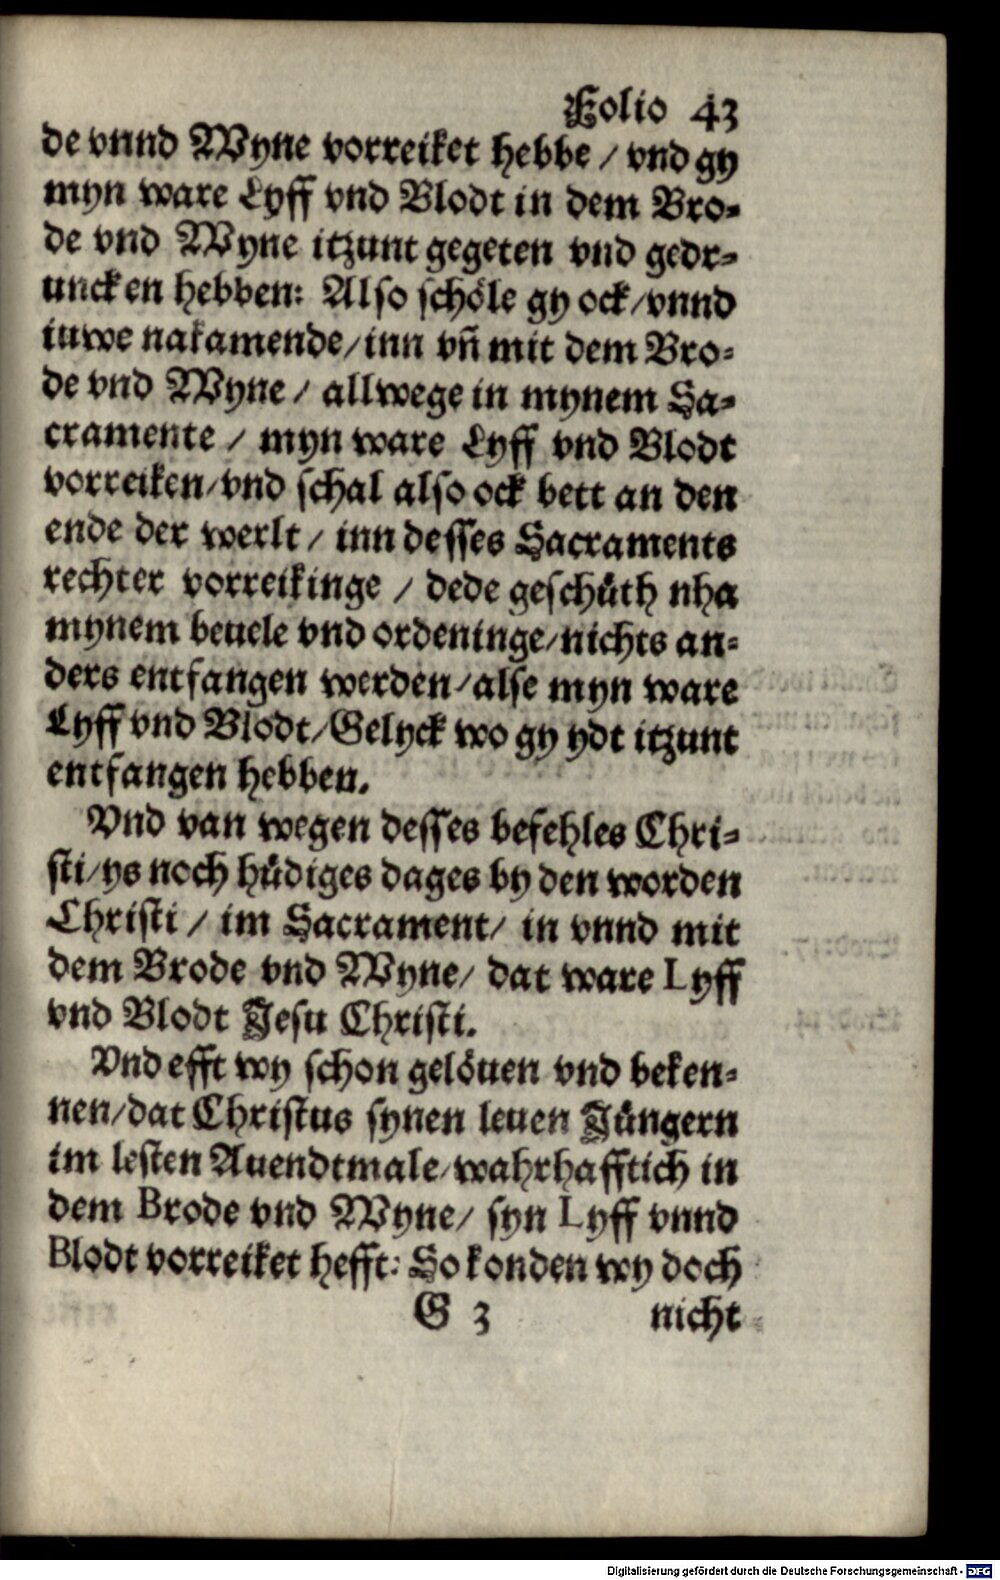 Folio 43
de vnnd Wyne vorreiket hebbe / vnd gy
myn ware Lyff vnd Blodt in dem Bro-
de vnd Wyne itzunt gegeten vnd gedr-
uncken hebben: Also schöle gy ock/vnnd
iuwe nakamende/inn vñ mit dem Bro-
de vnd Wyne / allwege in mynem Sa-
cramente / myn ware Lyff vnd Blodt
vorreiken/vnd schal also ock bett an den
ende der werlt / inn desses Sacraments
rechter vorreikinge / dede geschüth nha
mynem beuele vnd ordeninge/nichts an-
ders entfangen werden/alse myn ware
Lyff vnd Blodt/Gelyck wo gy ydt itzunt
entfangen hebben.
Vnd van wegen desses befehles Chri-
sti/ys noch hüdiges dages by den worden
Christi / im Sacrament/ in vnnd mit
dem Brode vnd Wyne/ dat ware Lyff
vnd Blodt Jesu Christi.
Vnd efft wy schon gelöuen vnd beken-
nen/dat Christus synen leuen Jüngern
im lesten Auendtmale/wahrhafftich in
dem Brode vnd Wyne/ syn Lyff vnnd
Blodt vorreiket hefft: So konden wy doch
G 3 nicht
Digitalisierung gefördert durch die Deutsche Forschungsgemeinschaft - DFG